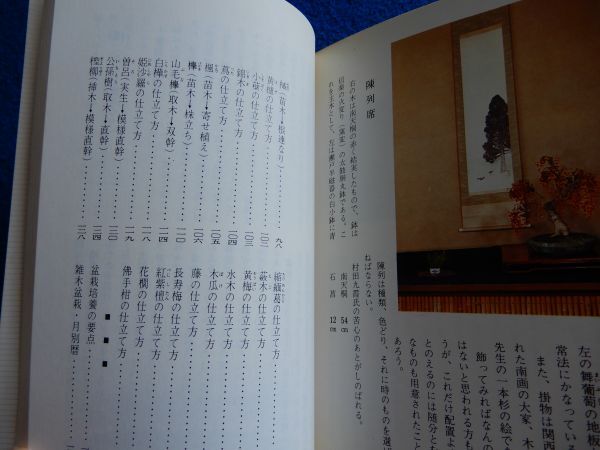 陳列席
右の木は南天桐の赤く結実したもので、鉢は
信楽の火変り(窯変)の太鼓胴丸鉢である。こ
れを主木として、左は瀬戸半磁器の白小鉢に青
陳列は種類、色どり、それに時のものを選ば
ねばならない。
村田九霞氏の苦心のあとがしのばれる。
南天桐 54㎝
石菖 12㎝
左の舞葡萄の地板
常法にかなっている
また、掛物は関西
れた南画の大家、木
先生の一本杉の絵で
飾ってみればなんの
はないと思われる方も
うが、これだけ配置よ
とのえるには随分と
なものも用意されたこと
あろう。
(苗木→根連なり)……九八
黄櫨の仕立て方……一〇二
小蘗の仕立て方……一〇三
錦木の仕立て方……一〇四
蔦の仕立て方……一〇五
楓(苗木→寄せ植え)……一〇五
欅(苗木→株立ち)……一〇六
山毛欅(取木→双幹)……一一〇
白樺の仕立て方……一一二
姫沙羅の仕立て方……一一六
僧呂(実生→模様直幹)……一一九
公孫樹(取木→直幹)……一二〇
檉柳(挿木→模様直幹)……一二四
……一二八
縮緬葛の仕立て方
荻木の仕立て方
黄梅の仕立て方
水木の仕立て方
木瓜の仕立て方
藤の仕立て方
長寿梅の仕立て方
紅紫檀の仕立て方
花櫚の仕立て方
佛手柑の仕立て方
■ ■ ■
盆栽培養の要点
雑木盆栽・月別暦